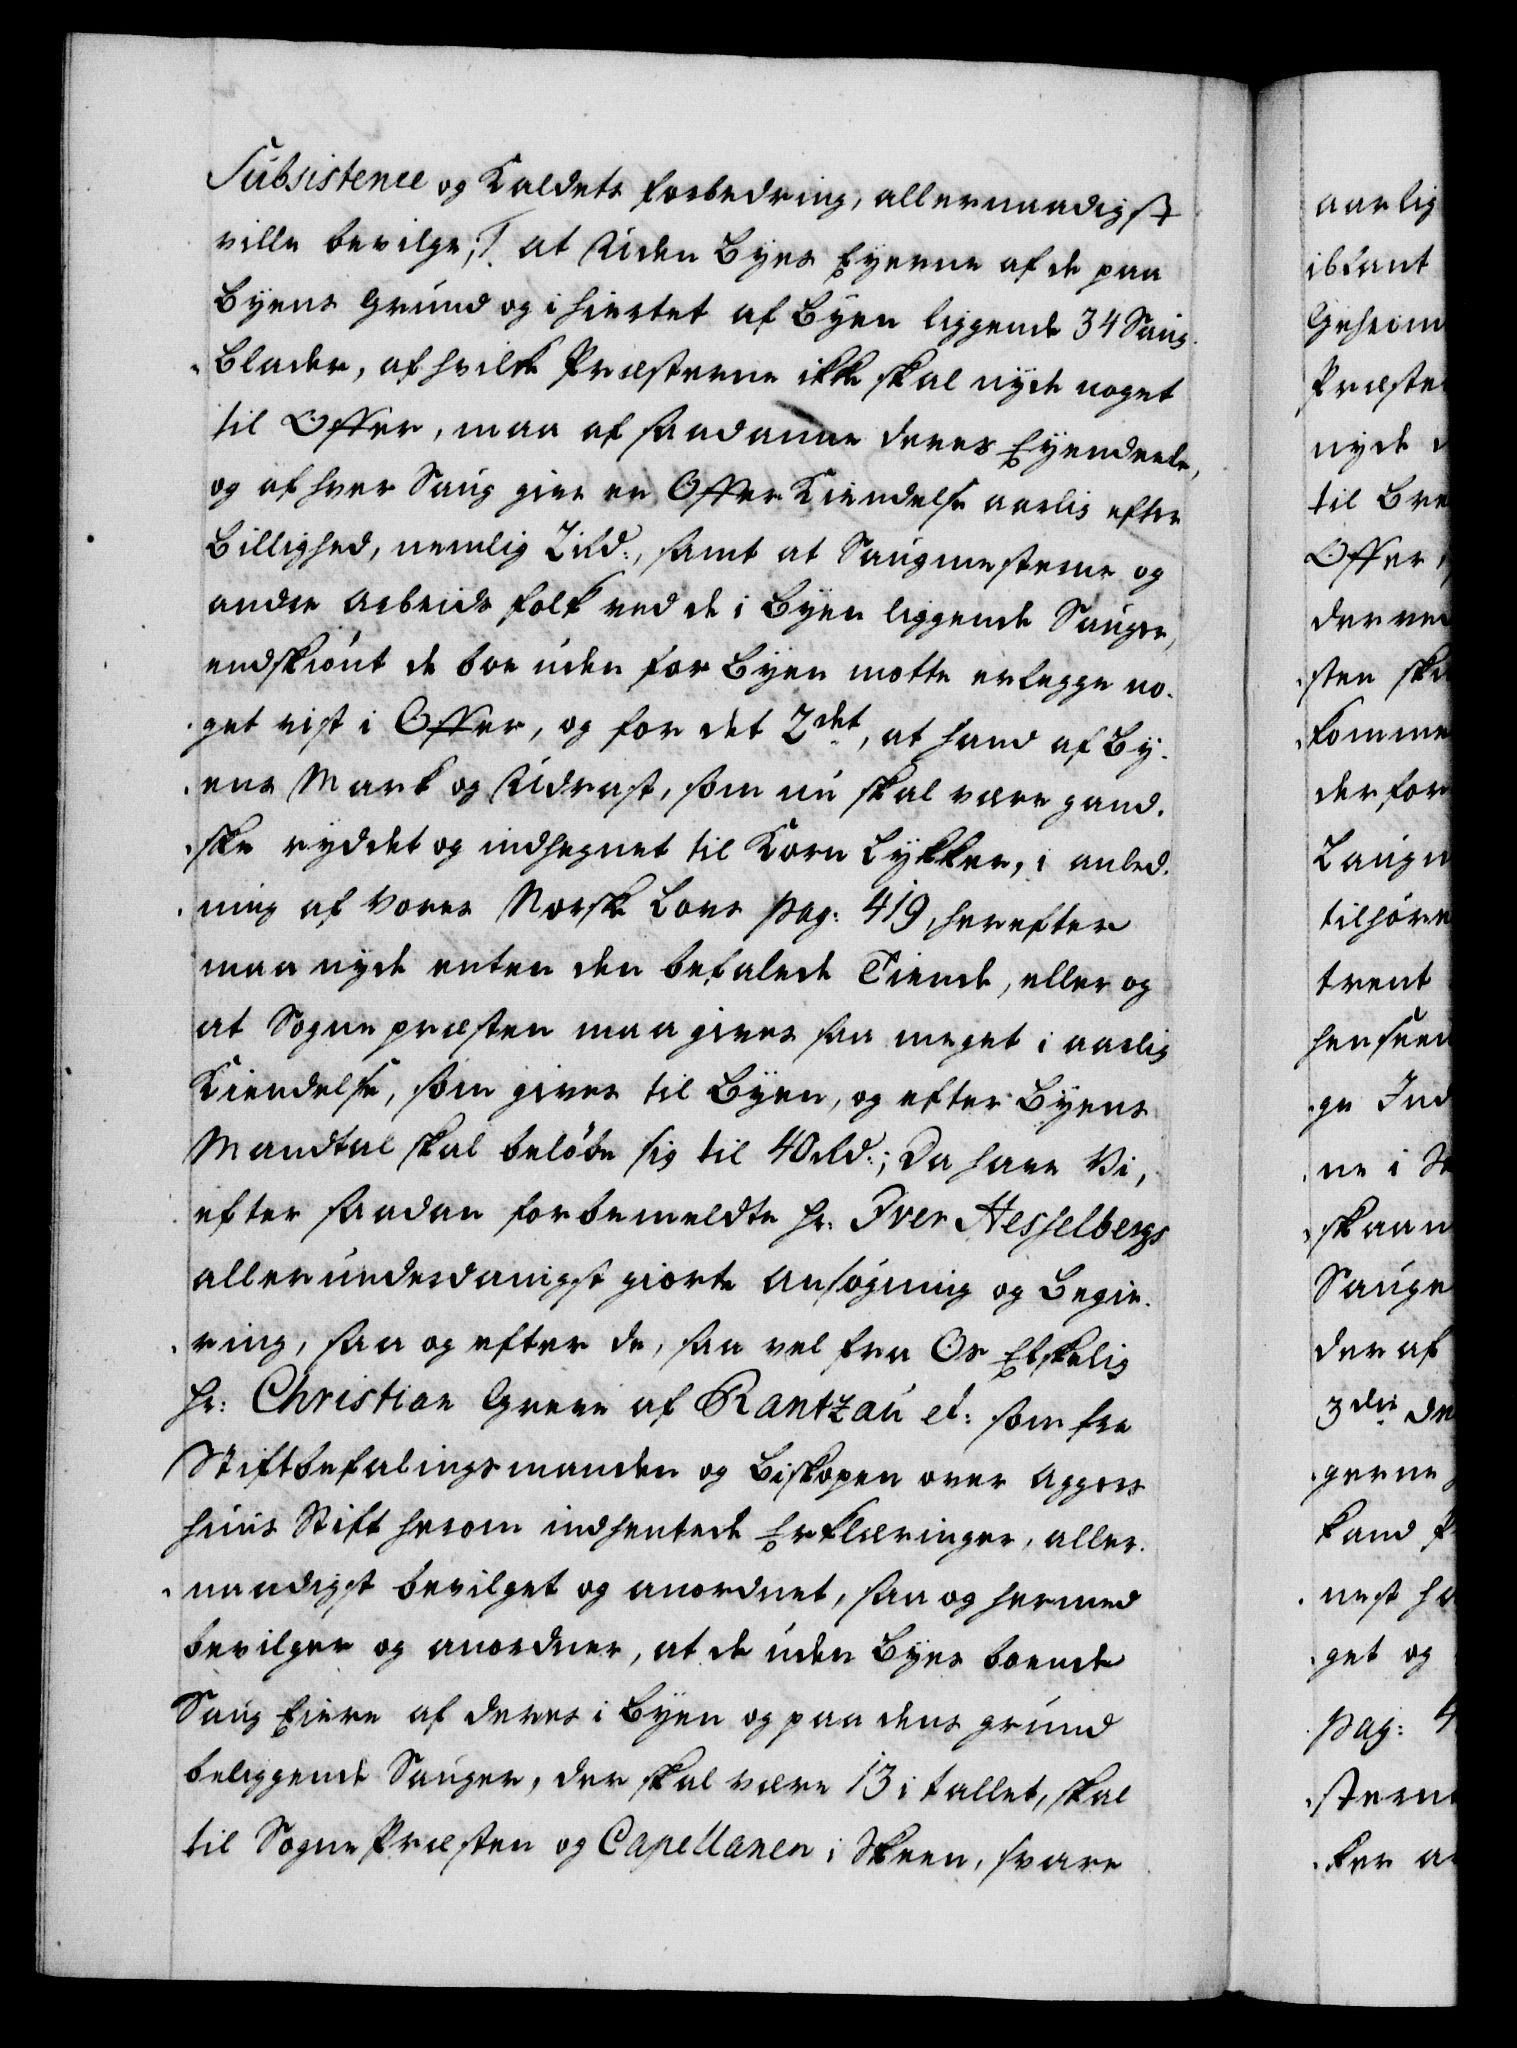 Subsistence og Kaldets forbedring, allernaadigst
ville bevilge, 1. at Uden Byes Eyerne af de paa
Byens Grund og i hiertet af Byen liggende 34 Saug-
Blader, af hvilke Præsterne ikke skal nyde noget
til Offer, maa af saadanne deres Eyendeele,
og af hver Saug give en Offer Kiendelse aarlig efter
Billighed, nemlig 2 rd:, samt at Saugmesterne og
andre Arbeids folk ved de i Byen liggende Sauger,
endskiønt de boe uden for Byen motte erlegge no-
get vist i Offer, og for det 2det, at hand af By-
ens Mark og Udrast, som nu skal være gand-
ske ryddet og indhegnet til Korn Lykker, i anled-
ning af Vores Norske Lovs pag: 419, herefter
maa nyde enten den befalede Tiende, eller og
at Sognepræsten maa gives saa meget i aarlig
Kiendelse, som gives til Byen, og efter Byens
Mandtal skal beløbe sig til 40 rd:; Da have Vi,
efter saadan forbemeldte Hr. Iver Hesselbergs
allerunderdanigst giorte Ansøgning og Begie-
ring, saa og efter de, saa vel fra Os Elskelig
Hr: Christian Greve af Rantzau et: som fra
Stiftbefalingsmanden og Biskopen over Aggers
huus Stift herom indhentede Erklæringer, aller-
naadigst bevilget og anordnet, saa og hermed
bevilger og anordner, at de uden Byes boende
Saug Eiere af deres i Byen og paa dens grund
beliggende Sauger, der skal være 13 i tallet, skal
til Sogne Præsten og Capellanen i Skeen, svare
aarlig
ibland
Geheim
Præste
nyde
til Bre
Offer
der ved
sten ska
komme
der for
Laugn
tilhøre
trent
henseen
ge Ind
ne i
skaan
Sauge
der af
3die
gerne
kand
nest
get og
pag: 4
sterne
ker